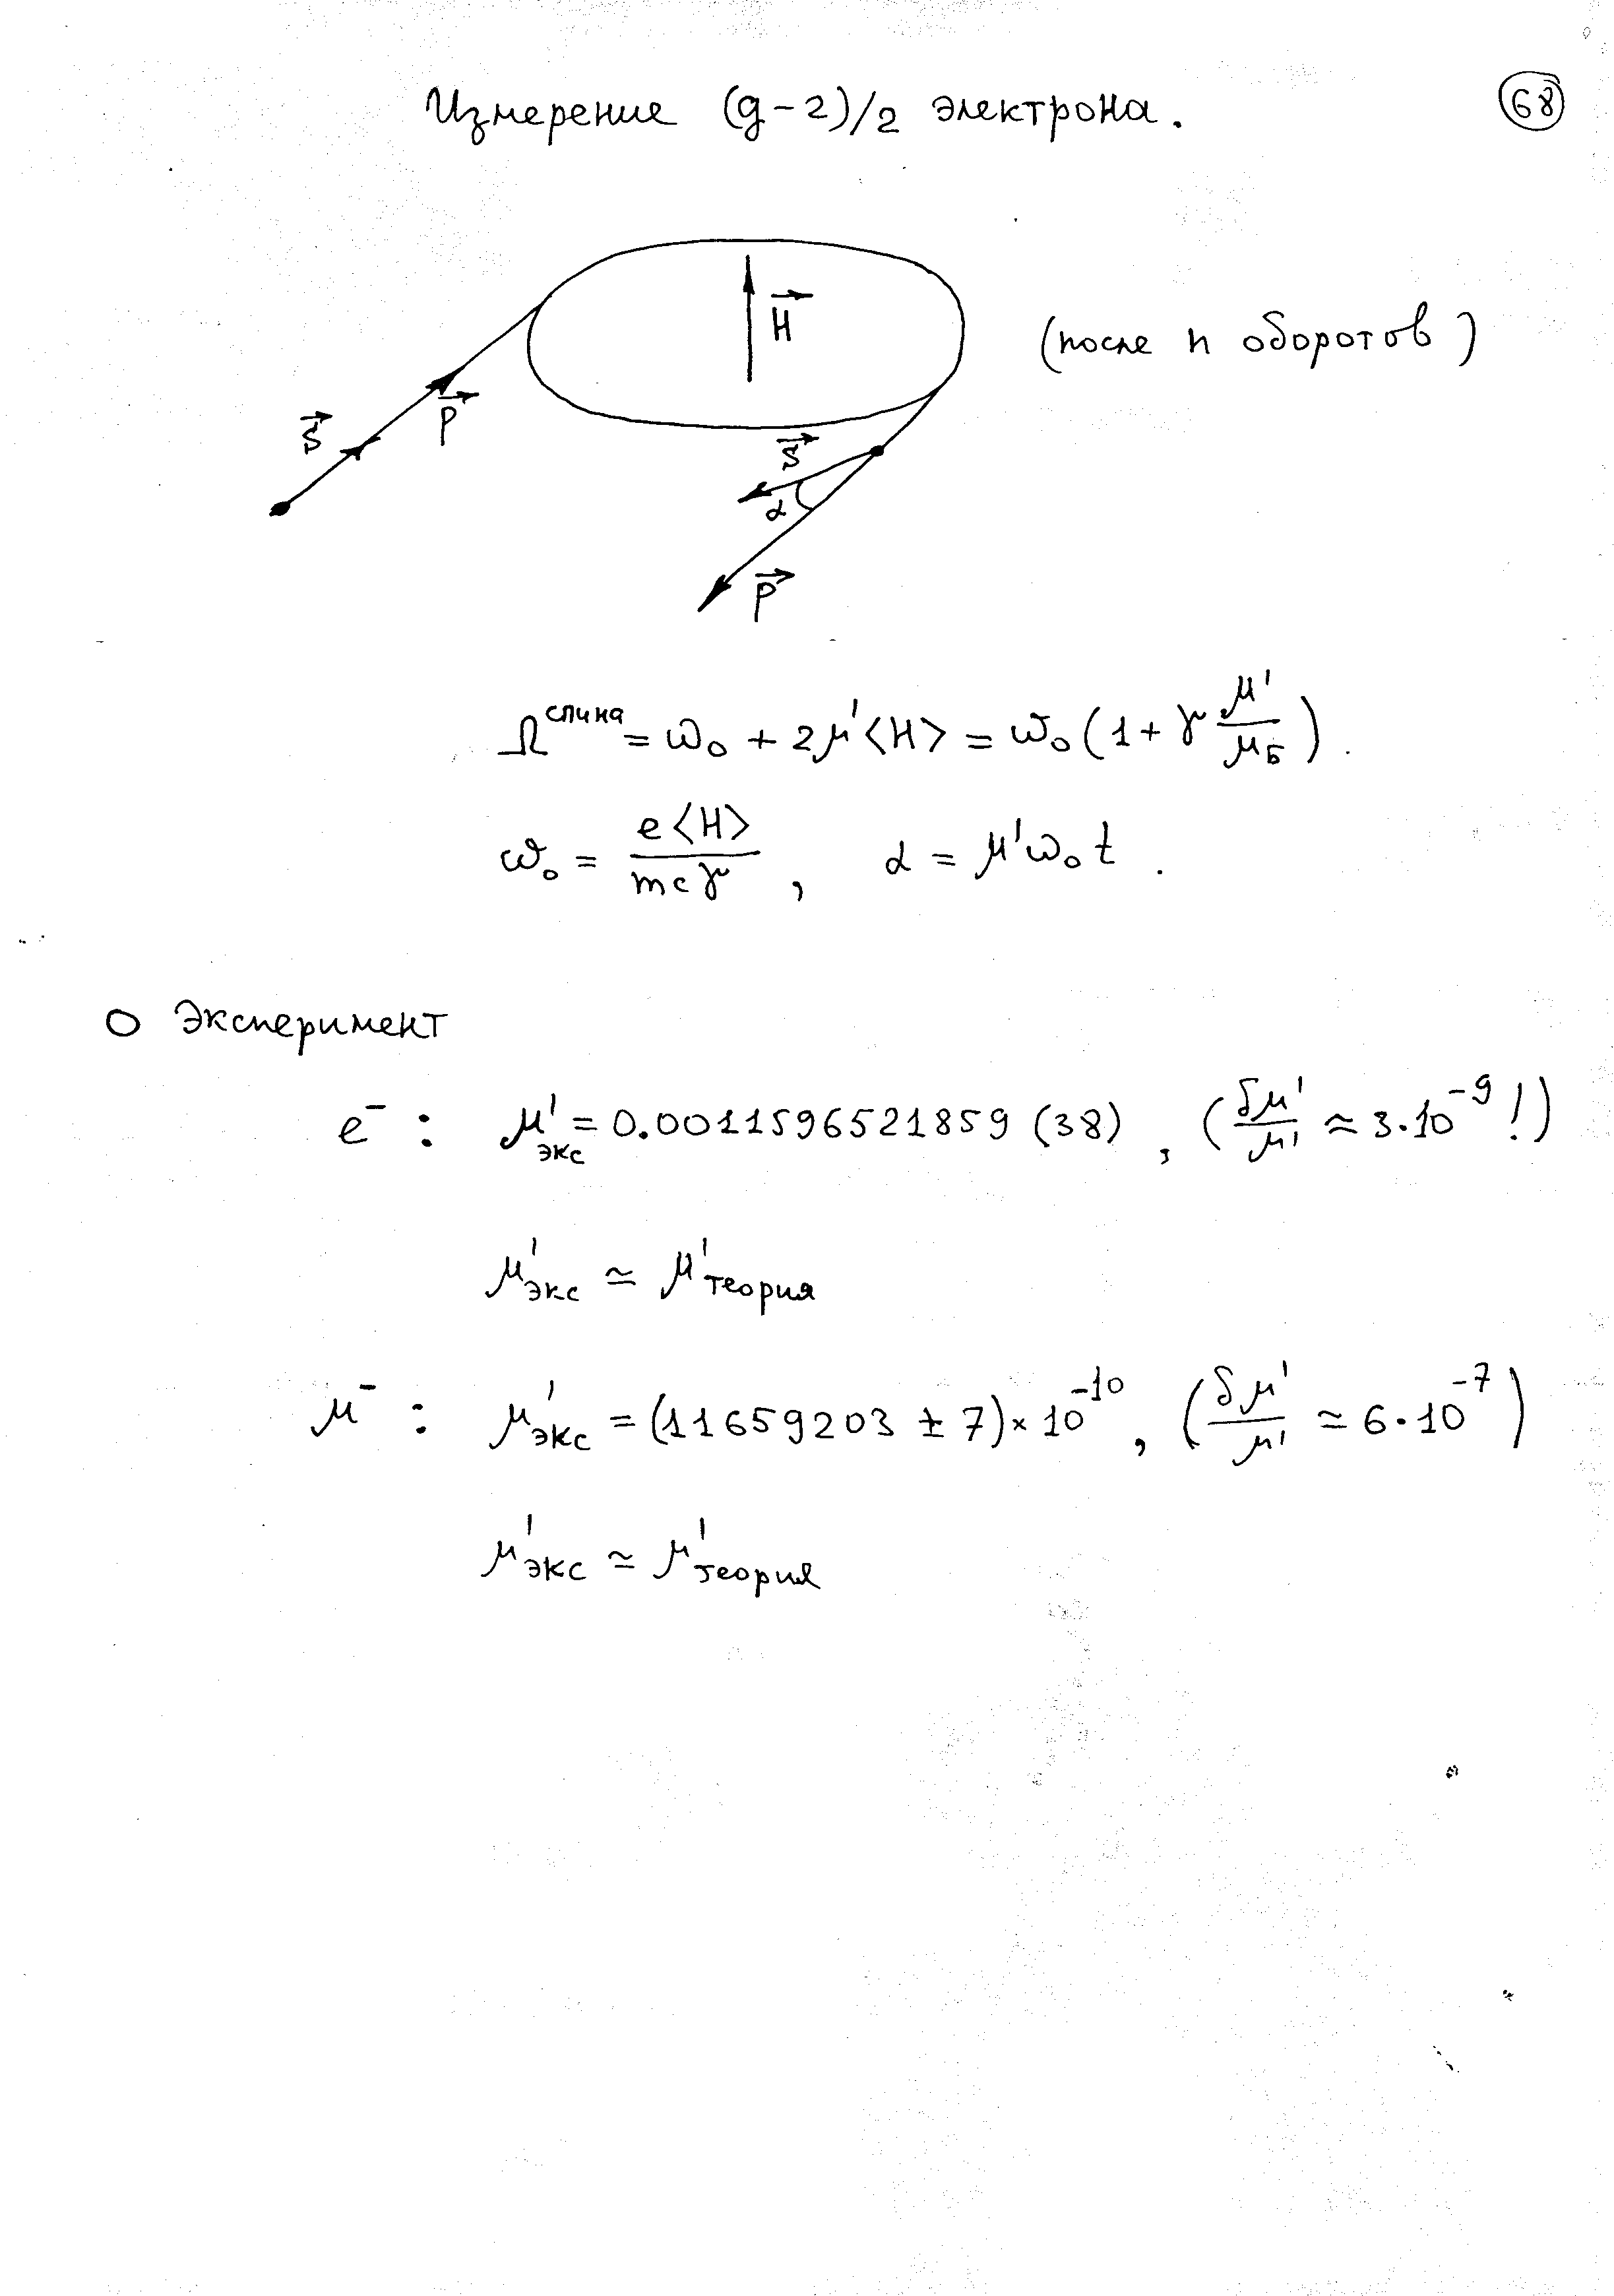 Измерение (g-2)/2 электрона.
68
H
(после n оборотов)
S
P
S
α
P
Ω^спина = ω₀ + 2μ'<H> = ω₀(1 + γ μ'/μ_Б).
ω₀ = e<H>/mcγ, α = μ'ω₀t.
○ Эксперимент
e⁻ : μ'экс = 0.0011596521859 (38), (δμ'/μ' ≈ 3·10⁻⁹!)
μ'экс ≃ μ'теория
μ⁻ : μ'экс = (11659203 ± 7)×10⁻¹⁰, (δμ'/μ' ≃ 6·10⁻⁷)
μ'экс ≃ μ'теория